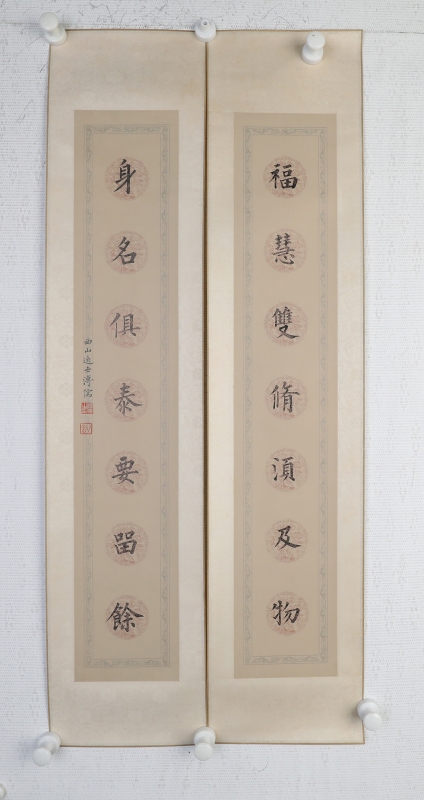 福慧雙脩須及物
身名俱泰要畱餘
西山逸士溥儒